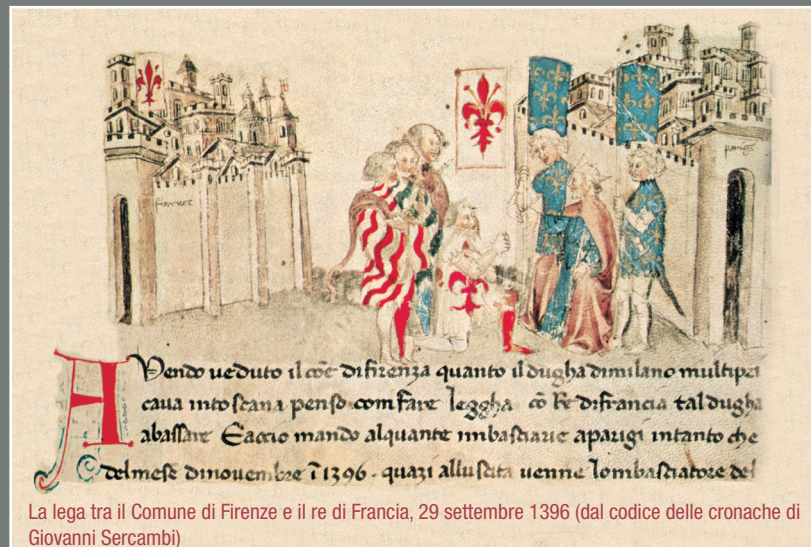 firenze
parigi
AVendo ueduto il coe difirenza quanto il dugha dimilano multipri
caua intoscana penso com fare leggha cō Re difrancia tal dugha
abassare Eaccio mando alquante imbasciarie aparigi intanto che
delmese dinouembre 1396. quazi alluscita uenne lombasciatore del
La lega tra il Comune di Firenze e il re di Francia, 29 settembre 1396 (dal codice delle cronache di
Giovanni Sercambi)